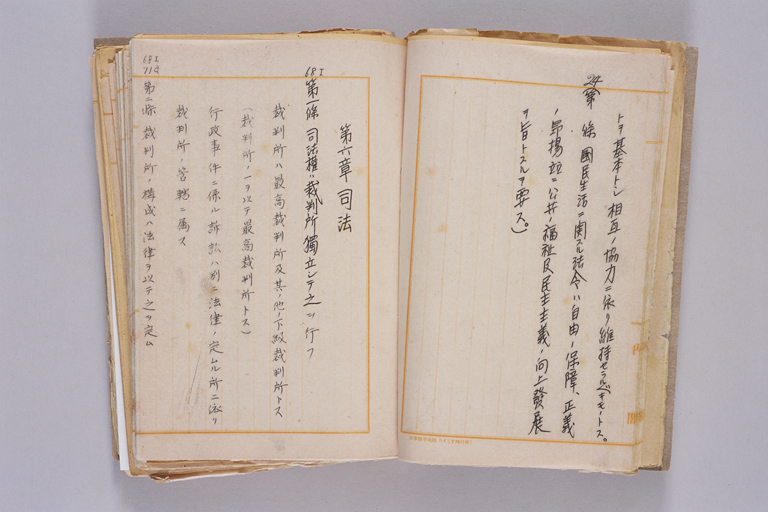 トヲ基本トシ相互ノ協力ニ依リ維持セラルベキモノトス。
24
第　條 國民生活ニ関スル法令ハ自由ノ保障、正義
ノ昂揚並ニ公共ノ福祉及民主主義ノ向上發展
ヲ旨トスルヲ要ス。)
第六章 司法
68 I
第一條 司法權ハ裁判所獨立シテ之ヲ行フ
裁判所ハ最高裁判所及其ノ他ノ下級裁判所トス
(裁判所ノ一ヲ以テ最高裁判所トス)
行政事件ニ係ル訴訟ハ別ニ法律ノ定ムル所ニ依リ
裁判所ノ管轄ニ属ス
68 I
第二條 裁判所ノ構成ハ法律ヲ以テ之ヲ定ム